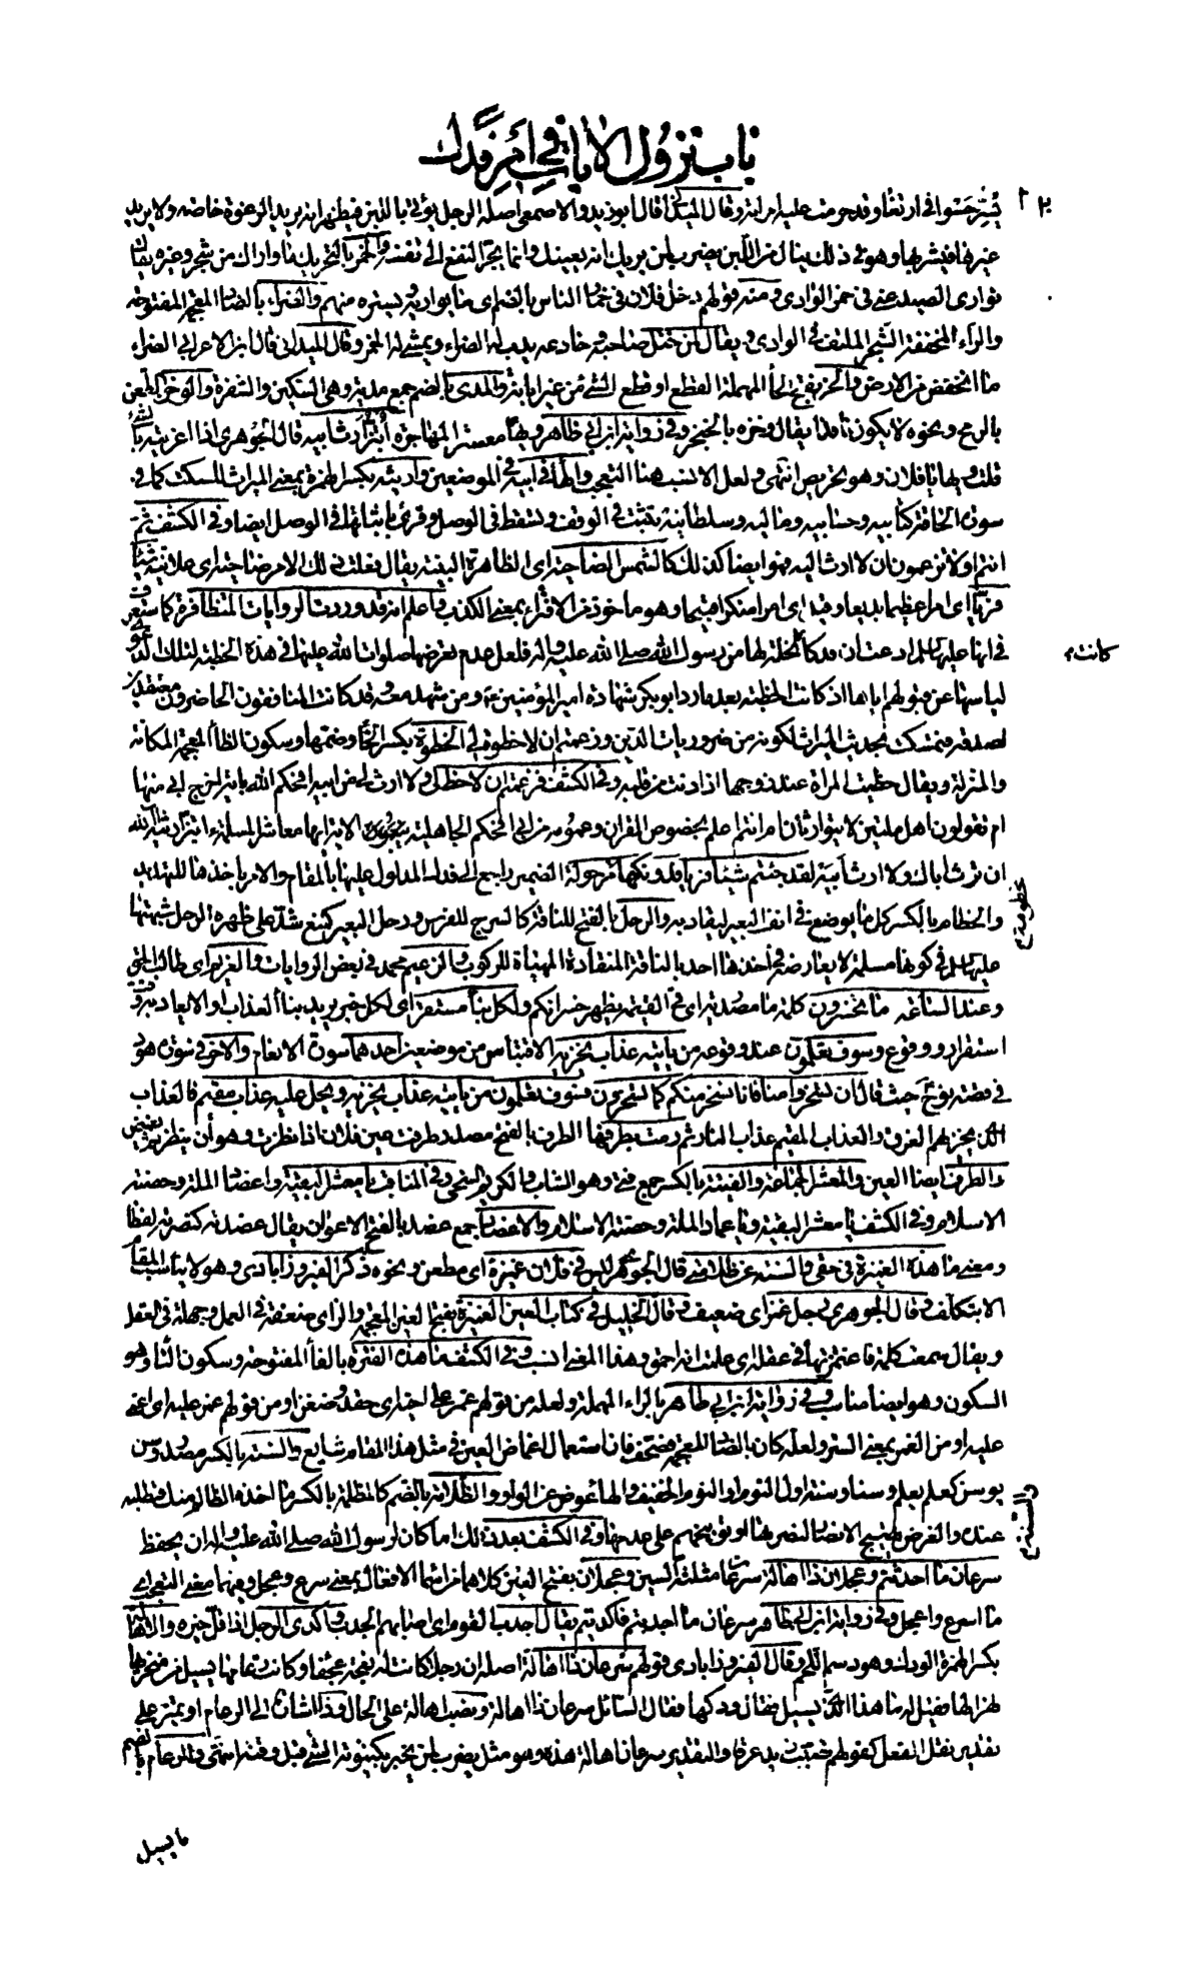 باب نزول الآيات في أمر فدك
يسر حسوا في ارتغاء وقد حرمت عليه امرأته وقال الميداني قال ابو زيد والاصمعي اصله الرجل يؤتى باللبن فيظهر انه يريد الرغوة خاصة ولا يريد
غيرها فيشربها وهو في ذلك ينال من اللبن يضرب لمن يريك انه يعينك وانما يجر النفع الى نفسه والخمر بالتحريك ما واراك من شجر وغيره يقال
توارى الصيد عني في خمر الوادي ومنه قولهم دخل فلان في خمار الناس بالضم اي ما يواريه ويستره منهم والضراء بالضاد المعجمة المفتوحة
والراء المخففة الشجر الملتف في الوادي ويقال لمن ختل صاحبه وخادعه يدب له الضراء ويمشي له الخمر وقال الميداني قال ابن الاعرابي الضراء
ما انخفض من الارض والحز بفتح الحاء المهملة القطع او قطع الشيء من غير ابانة والمدى بالضم جمع مدية وهي السكين والشفرة والوخز الطعن
بالرمح ونحوه لا يكون نافذا يقال وخزه بالخنجر وفي رواية ابن ابي طاهر ويها معشر المهاجرة أبتز ارث ابيه قال الجوهري اذا اغريته بالشيء
قلت ويها يا فلان وهو تحريص انتهى ولعل الانسب هنا التعجب والهاء في ابيه في الموضعين وارثيه بكسر الهمزة بمعنى الميراث للسكت كما في
سورة الحاقة كتابيه وحسابيه وماليه وسلطانيه تثبت في الوقف وتسقط في الوصل وقرئ باثباتها في الوصل ايضا وفي الكشف ثم
انتم اولا تزعمون ان لا ارث ليه فهو ايضا كذلك كالشمس الضاحية اي الظاهرة البينة يقال فعلت ذلك الامر ضاحية اي علانية شيئا
فريا اي امرا عظيما بديعا وقيل اي امرا منكرا قبيحا وهو مأخوذ من الافتراء بمعنى الكذب واعلم انه قد وردت الروايات المتظافرة كما ستعرف
في انها عليها السلم ادعت ان فدكا كانت نحلة لها من رسول الله صلى الله عليه وآله فلعل عدم تعرضها صلوات الله عليها في هذه الخطبة لتلك الدعوى
ليأسها عن قبولهم اياها اذ كانت الخطبة بعد ما رد ابو بكر شهادة امير المؤمنين ع ومن شهد معه وقد كانت المنافقون الحاضرون معتقدين
لصدقه فتمسكت بحديث الميراث لكونه من ضروريات الدين وزعمتم ان لا حظوة لي الحظوة بكسر الحاء وضمها وسكون الظاء المعجمة المكانة
والمنزلة ويقال حظيت المرأة عند زوجها اذا دنت من قلبه وفي الكشف فزعمتم ان لا حظ لي ولا ارث لي من ابيه افحكم الله بآية اخرج ابي منها
ام تقولون اهل ملتين لا يتوارثان ام انتم اعلم بخصوص القرآن وعمومه من ابي افحكم الجاهلية تبغون الآية ايها معاشر المسلمة ءابتز ارثيه الله
ان ترث اباك ولا ارث ابيه لقد جئتم شيئا فريا فدونكها مرحولة الضمير راجع الى فدك المدلول عليها بالمقام والامر بأخذها للتهديد
والخطام بالكسر كل ما يوضع في انف البعير ليقاد به والرحل بالفتح للناقة كالسرج للفرس ورحل البعير كمنع شد على ظهره الرحل شبهتها
عليها السلم في كونها مسلمة لا يعارضه في اخذها احد بالناقة المنقادة المهيأة للركوب والزعيم محمد في بعض الروايات والغريم اي طالب الحق
وعند الساعة ما تخسرون كلمة ما مصدرية اي في القيمة يظهر خسرانكم ولكل نبأ مستقر اي لكل خبر يريد نبأ العذاب او الايعاد به وقت
استقرار ووقوع وسوف تعلمون عند وقوعه من يأتيه عذاب يخزيه الاقتباس من موضعين احدهما سورة الانعام والآخر في سورة هود
في قصة نوح ع حيث قال ان تسخروا منا فانا نسخر منكم كما تسخرون فسوف تعلمون من يأتيه عذاب يخزيه ويحل عليه عذاب مقيم فالعذاب
الذي يخزيهم الغرق والعذاب المقيم عذاب النار ثم رمت بطرفها الطرف بالفتح مصدر طرفت عين فلان اذا نظرت وهو ان ينظر ثم يغمض
والطرف ايضا العين والمعشر الجماعة والفتية بالكسر جمع فتى وهو الشاب والكريم السخي وفي المناقب يا معشر البقية واعضاد الملة وحضنة
الاسلام وفي الكشف يا معشر البقية ويا عماد الملة وحصنة الاسلام والاعضاد جمع عضد بالفتح الاعوان يقال عضدته كنصرته لفظا
ومعنى ما هذه الغميزة في حقي والسنة عن ظلامتي قال الجوهري ليس في فلان غميزة اي مطعن ونحوه ذكر الفيروزابادي وهو لا يناسب المقام
الا بتكلف وقال الجوهري رجل غمز اي ضعيف وقال الخليل في كتاب العين الغميزة بفتح الغين المعجمة والزاي ضعفة في العمل وجهلة في العقل
ويقال سمعت كلمة فاغتمزتها في عقله اي علمت انه احمق وهذا المعنى انسب وفي الكشف ما هذه الفترة بالفاء المفتوحة وسكون التاء وهو
السكون وهو ايضا مناسب وفي رواية ابن ابي طاهر بالراء المهملة ولعله من قولهم غمر على اخيه اي حقد وضغن او من قولهم غمر عليه اي اغمي
عليه او من الغمر بمعنى الستر ولعله كان بالضاد المعجمة فصحف فان استعمال اغماض العين في مثل هذا المقام شايع والسنة بالكسر مصدر وسن
يوسن كعلم يعلم وسنا وسنة اول النوم او النوم الخفيف والهاء عوض عن الواو والظلامة بالضم كالمظلمة بالكسر ما اخذه الظالم منك فتطلبه
عنده والغرض تهييج الانصار لنصرها او توبيخهم على عدمها وفي الكشف بعد ذلك اما كان لرسول الله صلى الله عليه وآله ان يحفظ
سرعان ما احدثتم وعجلان ذا اهالة سرعان مثلثة السين وعجلان بفتح العين كلاهما من اسماء الافعال بمعنى سرع وعجل وفيهما معنى التعجب اي
ما اسرع واعجل وفي رواية ابن ابي طاهر سرعان ما اجدبتم فاكديتم يقال اجدب القوم اي اصابهم الجدب واكدى الرجل اذا قل خيره والاهالة
بكسر الهمزة الودك وهو دسم اللحم وقال الفيروزابادي قولهم سرعان ذا اهالة اصله ان رجلا كانت له نعجة عجفاء وكانت رغامها يسيل من منخريها
لهزالها فقيل له ما هذا الذي يسيل فقال ودكها فقال السائل سرعان ذا اهالة ونصب اهالة على الحال وذا اشارة الى الرغام او تميز على
تقدير نقل الفعل كقولهم تصبب زيد عرقا والتقدير سرعان اهالة هذه وهو مثل يضرب لمن يخبر بكينونة الشيء قبل وقته انتهى والرغام بالضم
ما يسيل